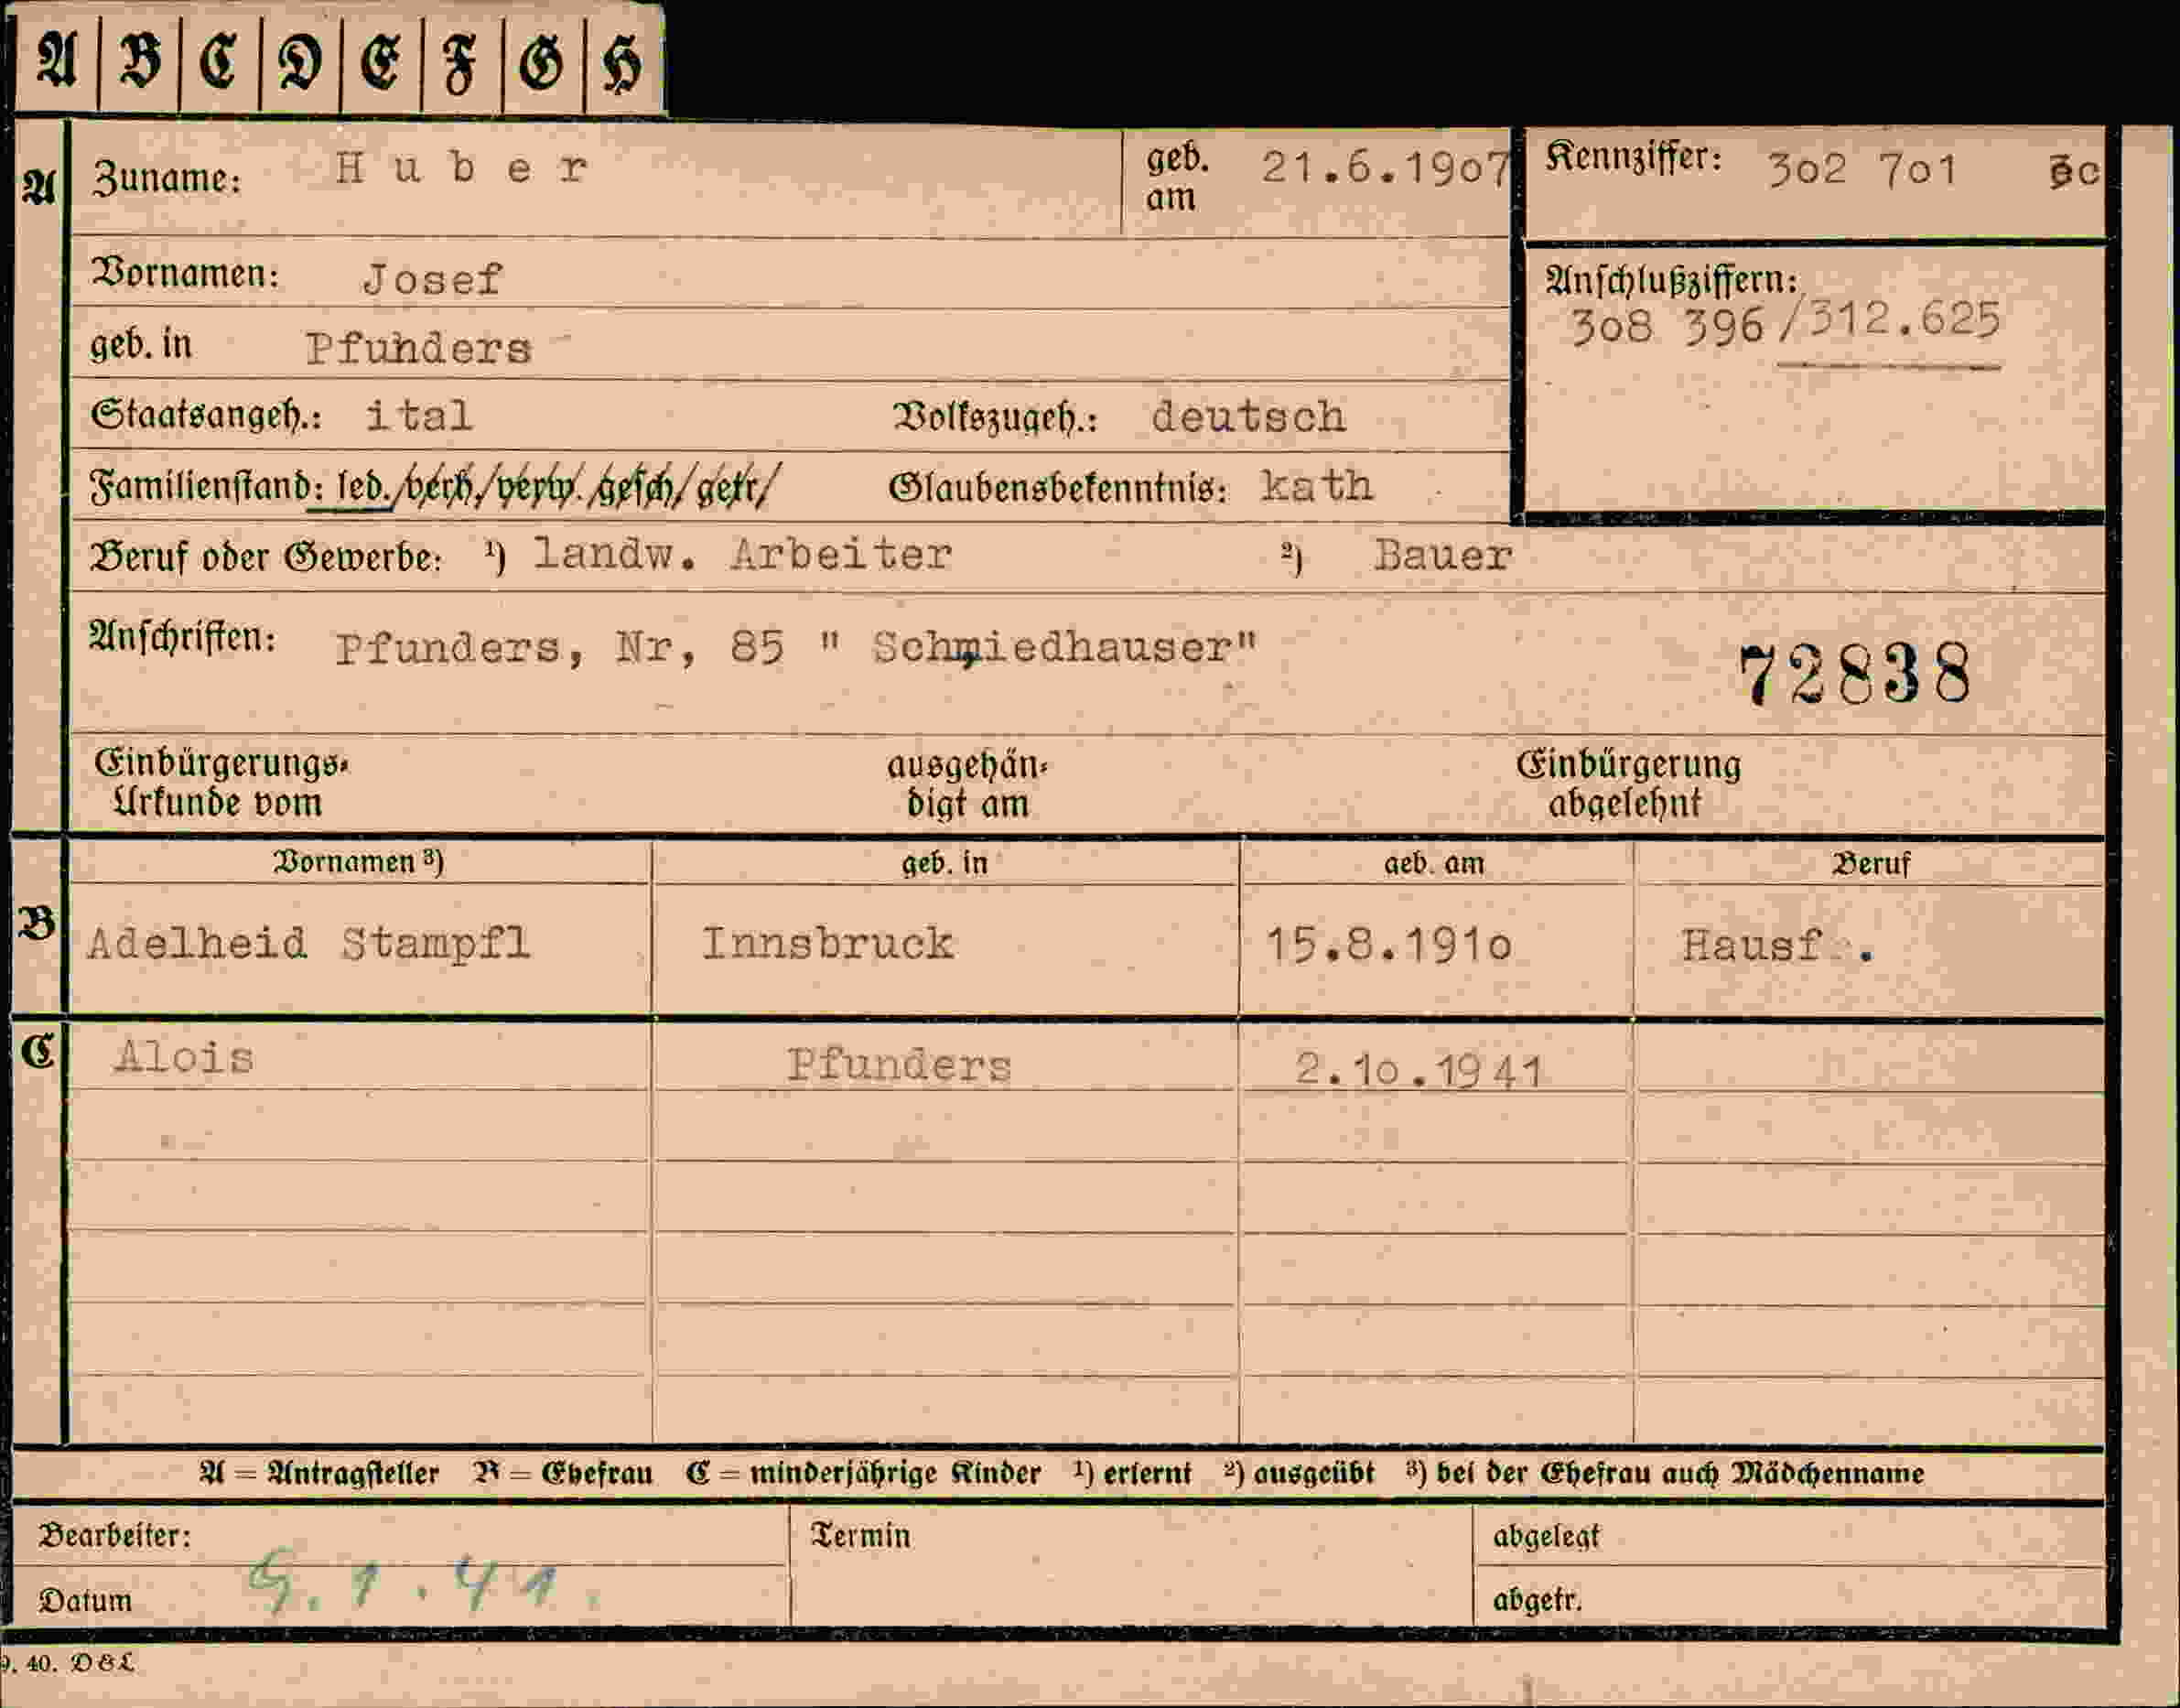 A B C D E F G H
A Zuname: Huber geb. am 21.6.1907 Kennziffer: 302 701
Vornamen: Josef
Anschlußziffern:
308 396/312.625
geb. in Pfunders
Staatsangeh.: ital Volkszugeh.: deutsch
Familienstand: led./verh./verw./gesch/getr/ Glaubensbekenntnis: kath
Beruf oder Gewerbe: ¹) landw. Arbeiter ²) Bauer
Anschriften: Pfunders, Nr, 85 " Schmiedhauser" 72838
Einbürgerungs- ausgehän- Einbürgerung
Urkunde vom digt am abgelehnt
Vornamen ³) geb. in geb. am Beruf
B Adelheid Stampfl Innsbruck 15.8.1910 Hausf .
C Alois Pfunders 2.10.1941
A = Antragsteller B = Ehefrau C = minderjährige Kinder ¹) erlernt ²) ausgeübt ³) bei der Ehefrau auch Mädchenname
Bearbeiter: Termin abgelegt
Datum 9.1.41. abgetr.
9. 40. D&L